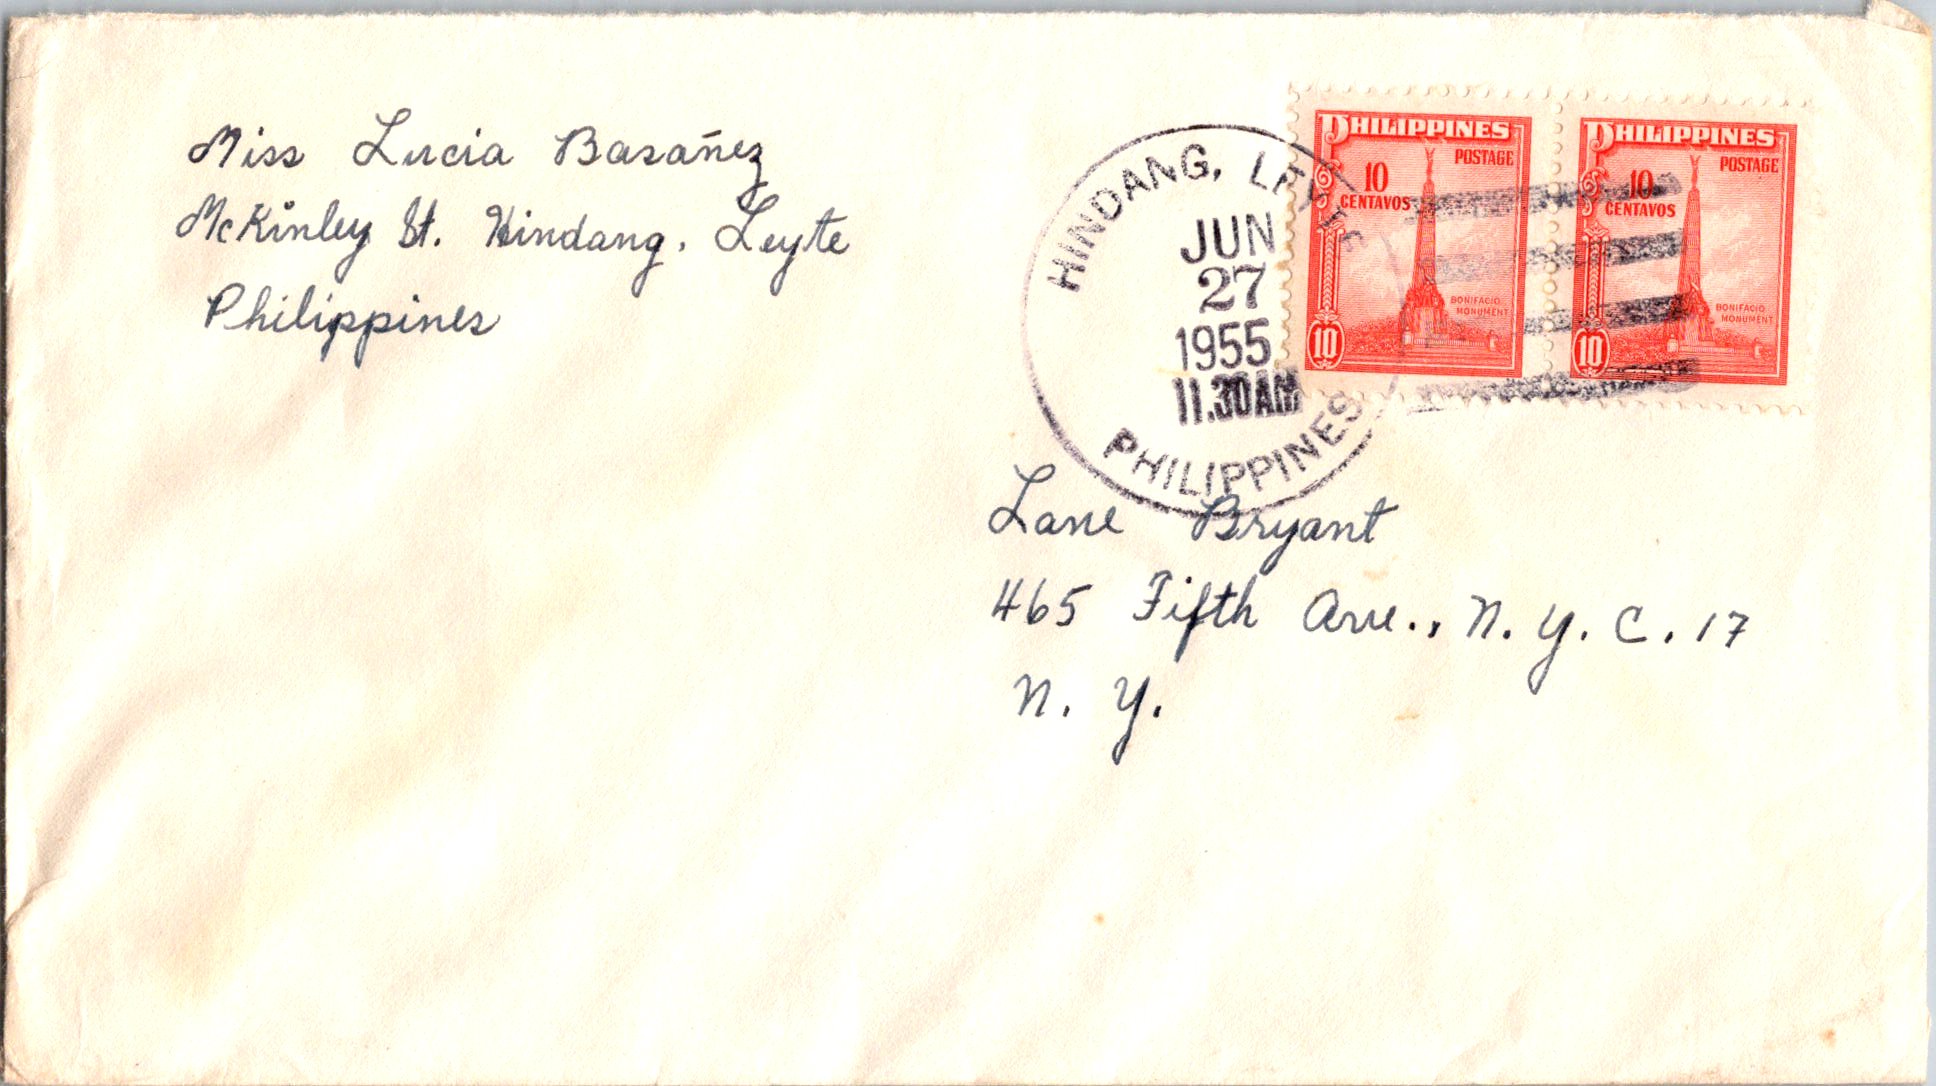 Miss Lucia Basañez
McKinley St. Hindang, Leyte
Philippines
HINDANG, LEYTE
JUN
27
1955
11.30AM
PHILIPPINES
PHILIPPINES
POSTAGE
10
CENTAVOS
BONIFACIO
MONUMENT
10
PHILIPPINES
POSTAGE
10
CENTAVOS
BONIFACIO
MONUMENT
10
Lane Bryant
465 Fifth Ave., N.Y.C. 17
N.Y.